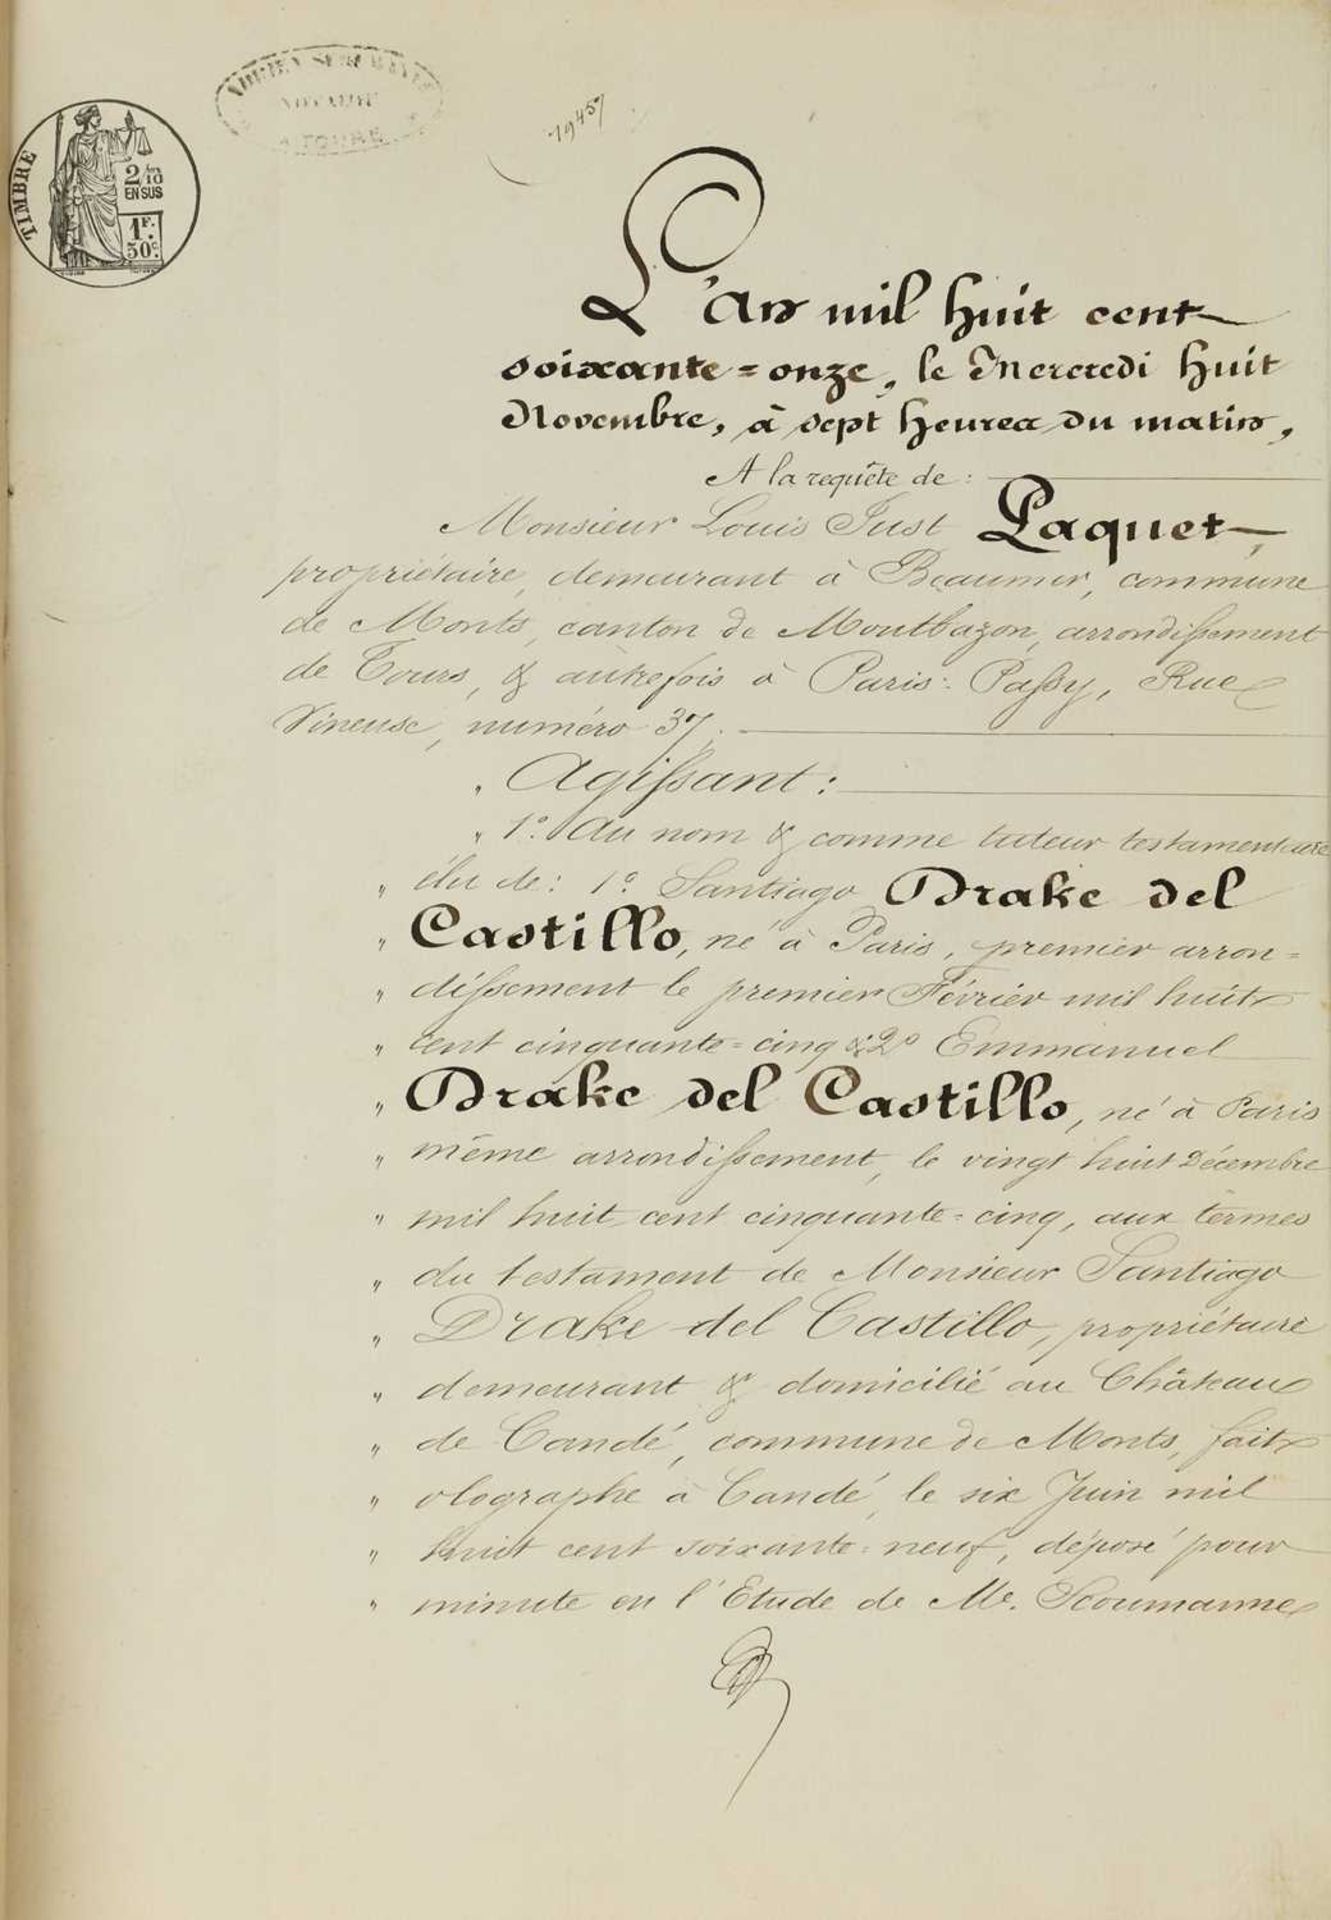 TIMBRE
2/10
EN SUS
1F.
50c.
NOTAIRE
A TOURS
19457
L'An mil huit cent
soixante=onze, le Mercredi huit
Novembre, à sept heures du matin,
A la requête de:
Monsieur Louis Just Paquet,
propriétaire, demeurant à Beaumer, commune
de Monts, canton de Montbazon, arrondissement
de Tours, & autrefois à Paris=Passy, Rue
Vineuse, numéro 37.
" Agissant:
" 1º Au nom & comme tuteur testamentaire
" élu de: 1º Santiago Drake del
" Castillo, né à Paris, premier arron=
" dissement le premier Février mil huit
" cent cinquante=cinq & 2º Emmanuel
" Drake del Castillo, né à Paris
" même arrondissement, le vingt huit Décembre
" mil huit cent cinquante=cinq, aux termes
" du testament de Monsieur Santiago
" Drake del Castillo, propriétaire
" demeurant & domicilié au Château
" de Candé, commune de Monts, fait
" olographe à Candé, le six Juin mil
" huit cent soixante=neuf, déposé pour
" minute en l'Etude de Me. Scoumanne